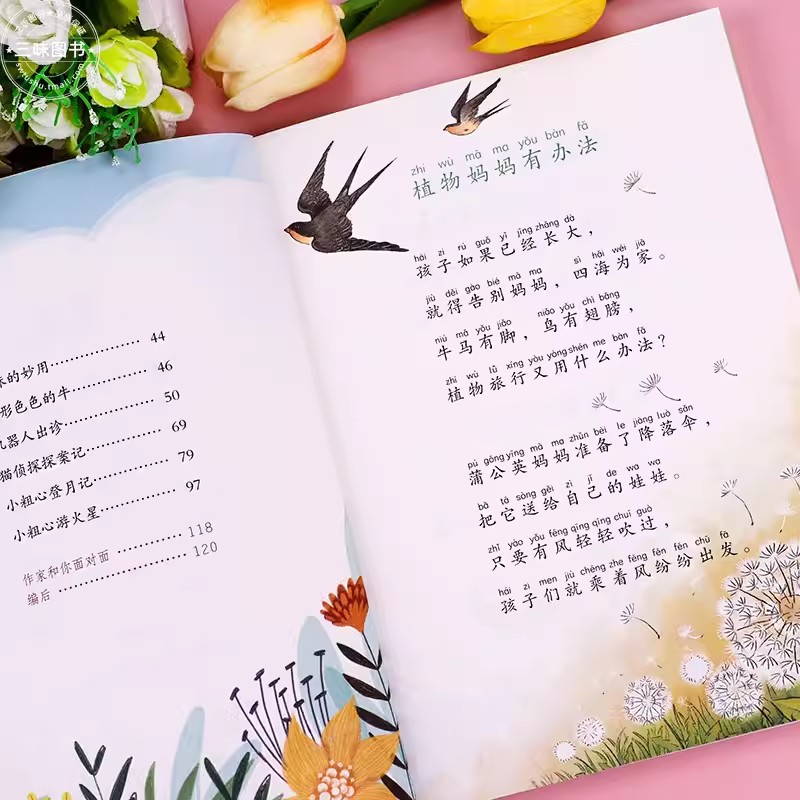 三味图书
swtushu.tmall.com
的妙用 44
形色色的牛 46
机器人出诊 50
猫侦探探案记 69
小粗心登月记 79
小粗心游火星 97
作家和你面对面 118
编后 120
zhí wù mā ma yǒu bàn fǎ
植物妈妈有办法
hái zi rú guǒ yǐ jīng zhǎng dà
孩子如果已经长大，
jiù děi gào bié mā ma sì hǎi wéi jiā
就得告别妈妈，四海为家。
niú mǎ yǒu jiǎo niǎo yǒu chì bǎng
牛马有脚，鸟有翅膀，
zhí wù lǚ xíng yòu yòng shén me bàn fǎ
植物旅行又用什么办法？
pú gōng yīng mā ma zhǔn bèi le jiàng luò sǎn
蒲公英妈妈准备了降落伞，
bǎ tā sòng gěi zì jǐ de wá wa
把它送给自己的娃娃。
zhǐ yào yǒu fēng qīng qīng chuī guò
只要有风轻轻吹过，
hái zi men jiù chéng zhe fēng fēn fēn chū fā
孩子们就乘着风纷纷出发。